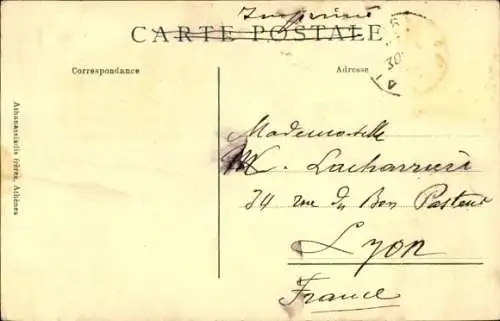 Imprimé
CARTE POSTALE
Correspondance
Adresse
30
Mademoiselle
M. Lacharrière
34 rue du Bon Pasteur
Lyon
France
Athanassiadis frères, Athènes